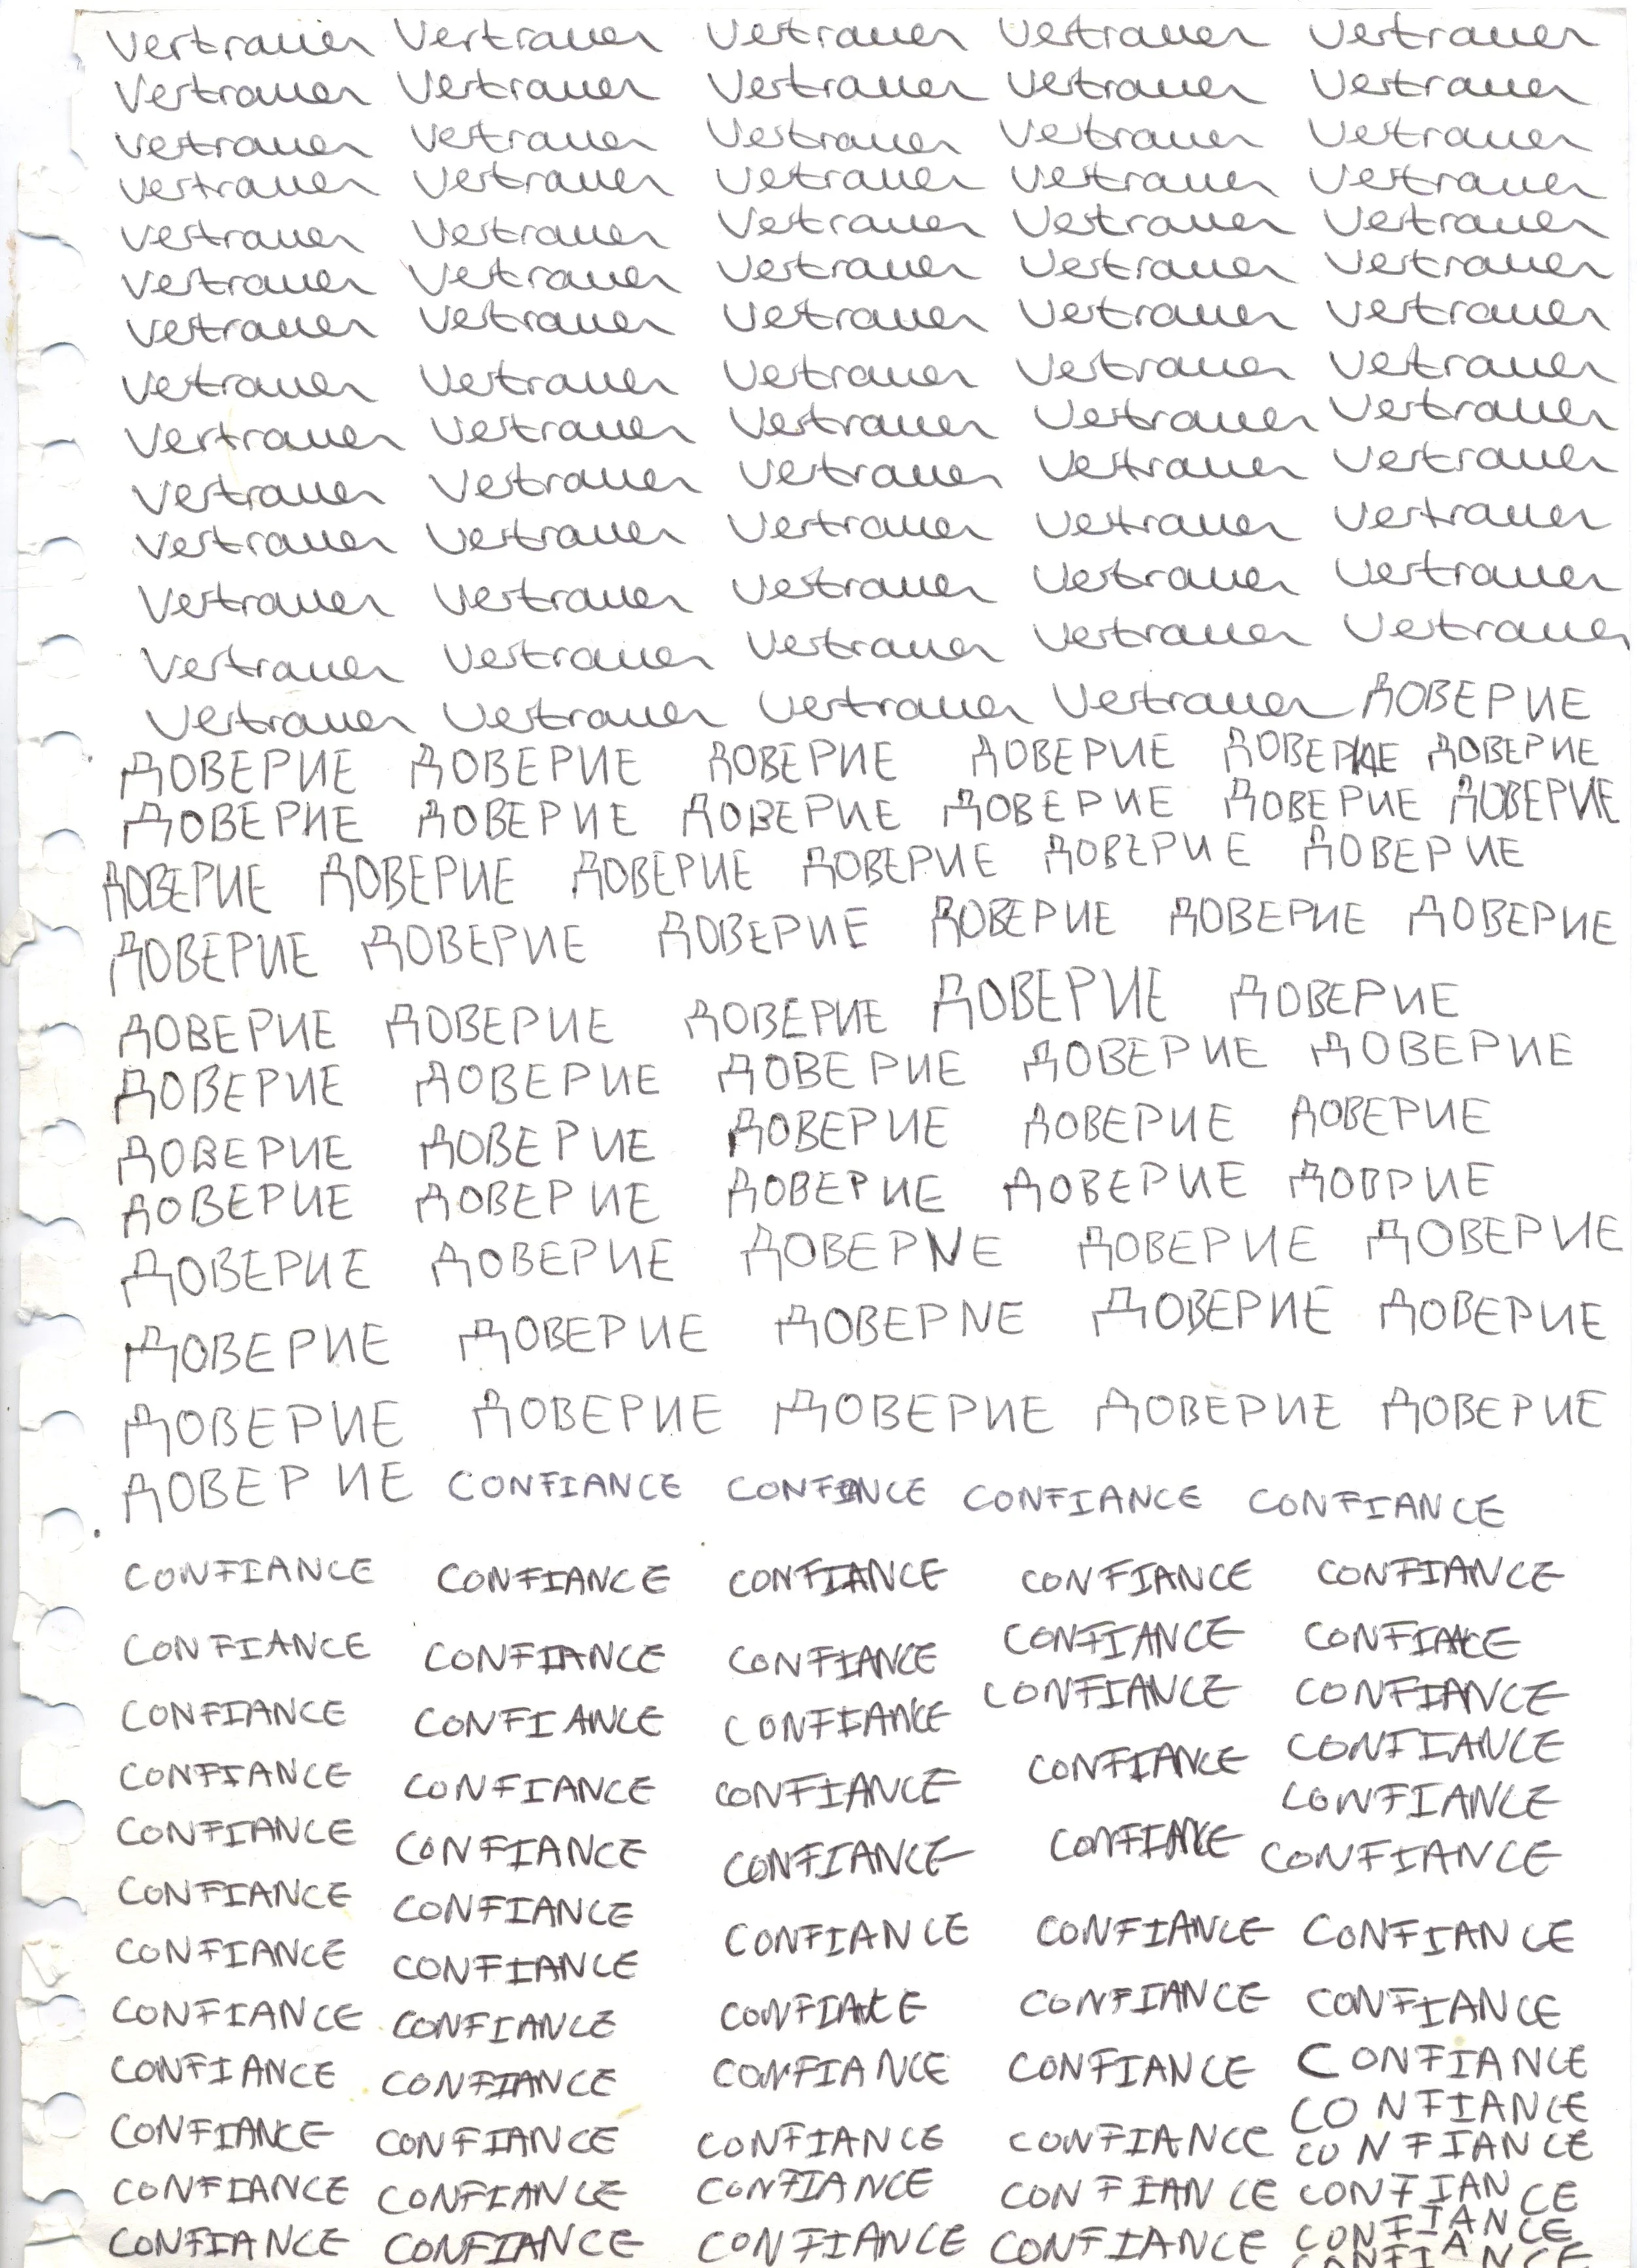 Vertrauen Vertrauen Vertrauen Vertrauen Vertrauen
Vertrauen Vertrauen Vertrauen Vertrauen Vertrauen
Vertrauen Vertrauen Vertrauen Vertrauen Vertrauen
Vertrauen Vertrauen Vertrauen Vertrauen Vertrauen
Vertrauen Vertrauen Vertrauen Vertrauen Vertrauen
Vertrauen Vertrauen Vertrauen Vertrauen Vertrauen
Vertrauen Vertrauen Vertrauen Vertrauen Vertrauen
Vertrauen Vertrauen Vertrauen Vertrauen Vertrauen
Vertrauen Vertrauen Vertrauen Vertrauen Vertrauen
Vertrauen Vertrauen Vertrauen Vertrauen Vertrauen
Vertrauen Vertrauen Vertrauen Vertrauen Vertrauen
Vertrauen Vertrauen Vertrauen Vertrauen Vertrauen
Vertrauen Vertrauen Vertrauen Vertrauen Vertrauen
Vertrauen Vertrauen Vertrauen Vertrauen ДОВЕРИЕ
ДОВЕРИЕ ДОВЕРИЕ ДОВЕРИЕ ДОВЕРИЕ ДОВЕРИЕ ДОВЕРИЕ
ДОВЕРИЕ ДОВЕРИЕ ДОВЕРИЕ ДОВЕРИЕ ДОВЕРИЕ ДОВЕРИЕ
ДОВЕРИЕ ДОВЕРИЕ ДОВЕРИЕ ДОВЕРИЕ ДОВЕРИЕ ДОВЕРИЕ
ДОВЕРИЕ ДОВЕРИЕ ДОВЕРИЕ ДОВЕРИЕ ДОВЕРИЕ ДОВЕРИЕ
ДОВЕРИЕ ДОВЕРИЕ ДОВЕРИЕ ДОВЕРИЕ ДОВЕРИЕ
ДОВЕРИЕ ДОВЕРИЕ ДОВЕРИЕ ДОВЕРИЕ ДОВЕРИЕ
ДОВЕРИЕ ДОВЕРИЕ ДОВЕРИЕ ДОВЕРИЕ ДОВЕРИЕ
ДОВЕРИЕ ДОВЕРИЕ ДОВЕРИЕ ДОВЕРИЕ ДОВРИЕ
ДОВЕРИЕ ДОВЕРИЕ ДОВЕРNЕ ДОВЕРИЕ ДОВЕРИЕ
ДОВЕРИЕ ДОВЕРИЕ ДОВЕРNЕ ДОВЕРИЕ ДОВЕРИЕ
ДОВЕРИЕ ДОВЕРИЕ ДОВЕРИЕ ДОВЕРИЕ ДОВЕРИЕ
ДОВЕРИЕ CONFIANCE CONFIANCE CONFIANCE CONFIANCE
CONFIANCE CONFIANCE CONFIANCE CONFIANCE CONFIANCE
CONFIANCE CONFIANCE CONFIANCE CONFIANCE CONFIANCE
CONFIANCE CONFIANCE CONFIANCE CONFIANCE CONFIANCE
CONFIANCE CONFIANCE CONFIANCE CONFIANCE CONFIANCE
CONFIANCE
CONFIANCE CONFIANCE CONFIANCE CONFIANCE CONFIANCE
CONFIANCE CONFIANCE CONFIANCE CONFIANCE CONFIANCE
CONFIANCE CONFIANCE CONFIANCE CONFIANCE CONFIANCE
CONFIANCE CONFIANCE CONFIANCE CONFIANCE CONFIANCE
CONFIANCE
CONFIANCE CONFIANCE CONFIANCE CONFIANCE CONFIANCE
CONFIANCE CONFIANCE CONFIANCE CONFIANCE CONFIANCE
CONFIANCE CONFIANCE CONFIANCE CONFIANCE CONFIANCE
CONFIANCE CONFIANCE